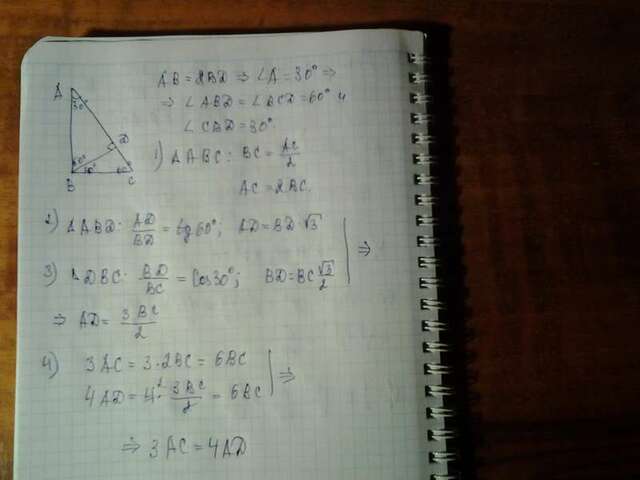 A
30°
D
60°
30°
60°
B
C
AB = 2BD ⇒ ∠A = 30° ⇒
⇒ ∠ABD = ∠BCD = 60° и
∠CBD = 30°.
1) ΔABC: BC = AC/2
AC = 2BC.
2) ΔABD: AD/BD = tg 60°; AD = BD·√3
3) ΔDBC: BD/BC = Cos 30°; BD = BC √3/2
⇒
⇒ AD = 3BC/2
4) 3AC = 3·2BC = 6BC
4AD = 4·3BC/2 = 6BC
⇒
⇒ 3AC = 4AD